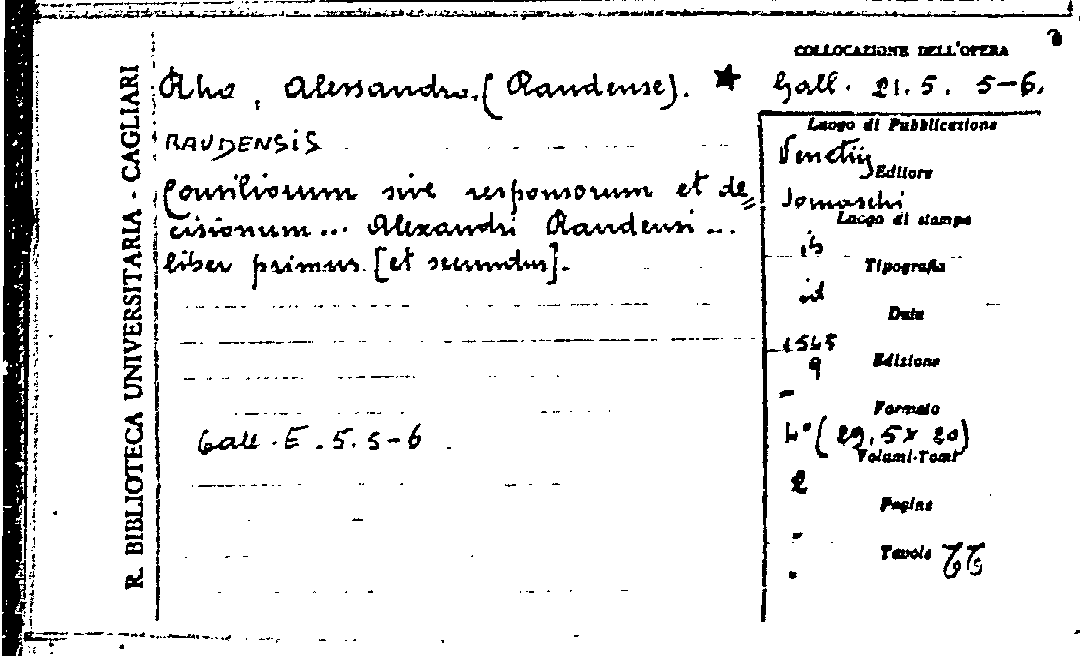 R. BIBLIOTECA UNIVERSITARIA - CAGLIARI
COLLOCAZIONE DELL'OPERA
Rho, Alessandro. (Raudense). ★ Gall. 21. 5. 5-6.
RAUDENSIS
Consiliorum sive responsorum et de=
cisionum... Alexandri Raudensi...
liber primus [et secundus].
Gall. E. 5. 5-6
Luogo di Pubblicazione
Venetijs
Editore
Luogo di stampa
ib
Tipografia
id
Data
Edizione
-
Formato
4° (29,5 x 20)
Volumi-Tomi
2
Pagine
Tavole